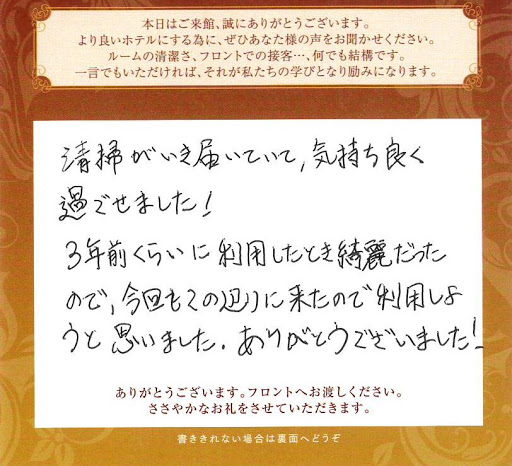 本日はご来館、誠にありがとうございます。
より良いホテルにする為に、ぜひあなた様の声をお聞かせください。
ルームの清潔さ、フロントでの接客…、何でも結構です。
一言でもいただければ、それが私たちの学びとなり励みになります。
清掃がいき届いていて,気持ち良く
過ごせました!
3年前くらいに利用したとき綺麗だった
ので,今回もこの辺りに来たので利用しよ
うと思いました.ありがとうございました!
ありがとうございます。フロントへお渡しください。
ささやかなお礼をさせていただきます。
書ききれない場合は裏面へどうぞ